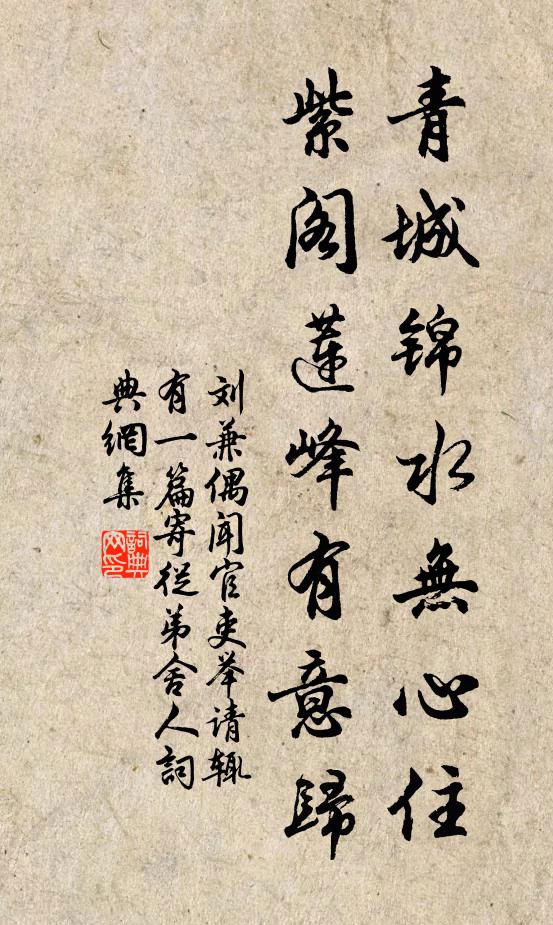 青城锦水無心住
紫阁蓮峰有意歸
刘兼偶闻官吏举请辄
有一篇寄從弟舍人詞
典網集
詞典
网印